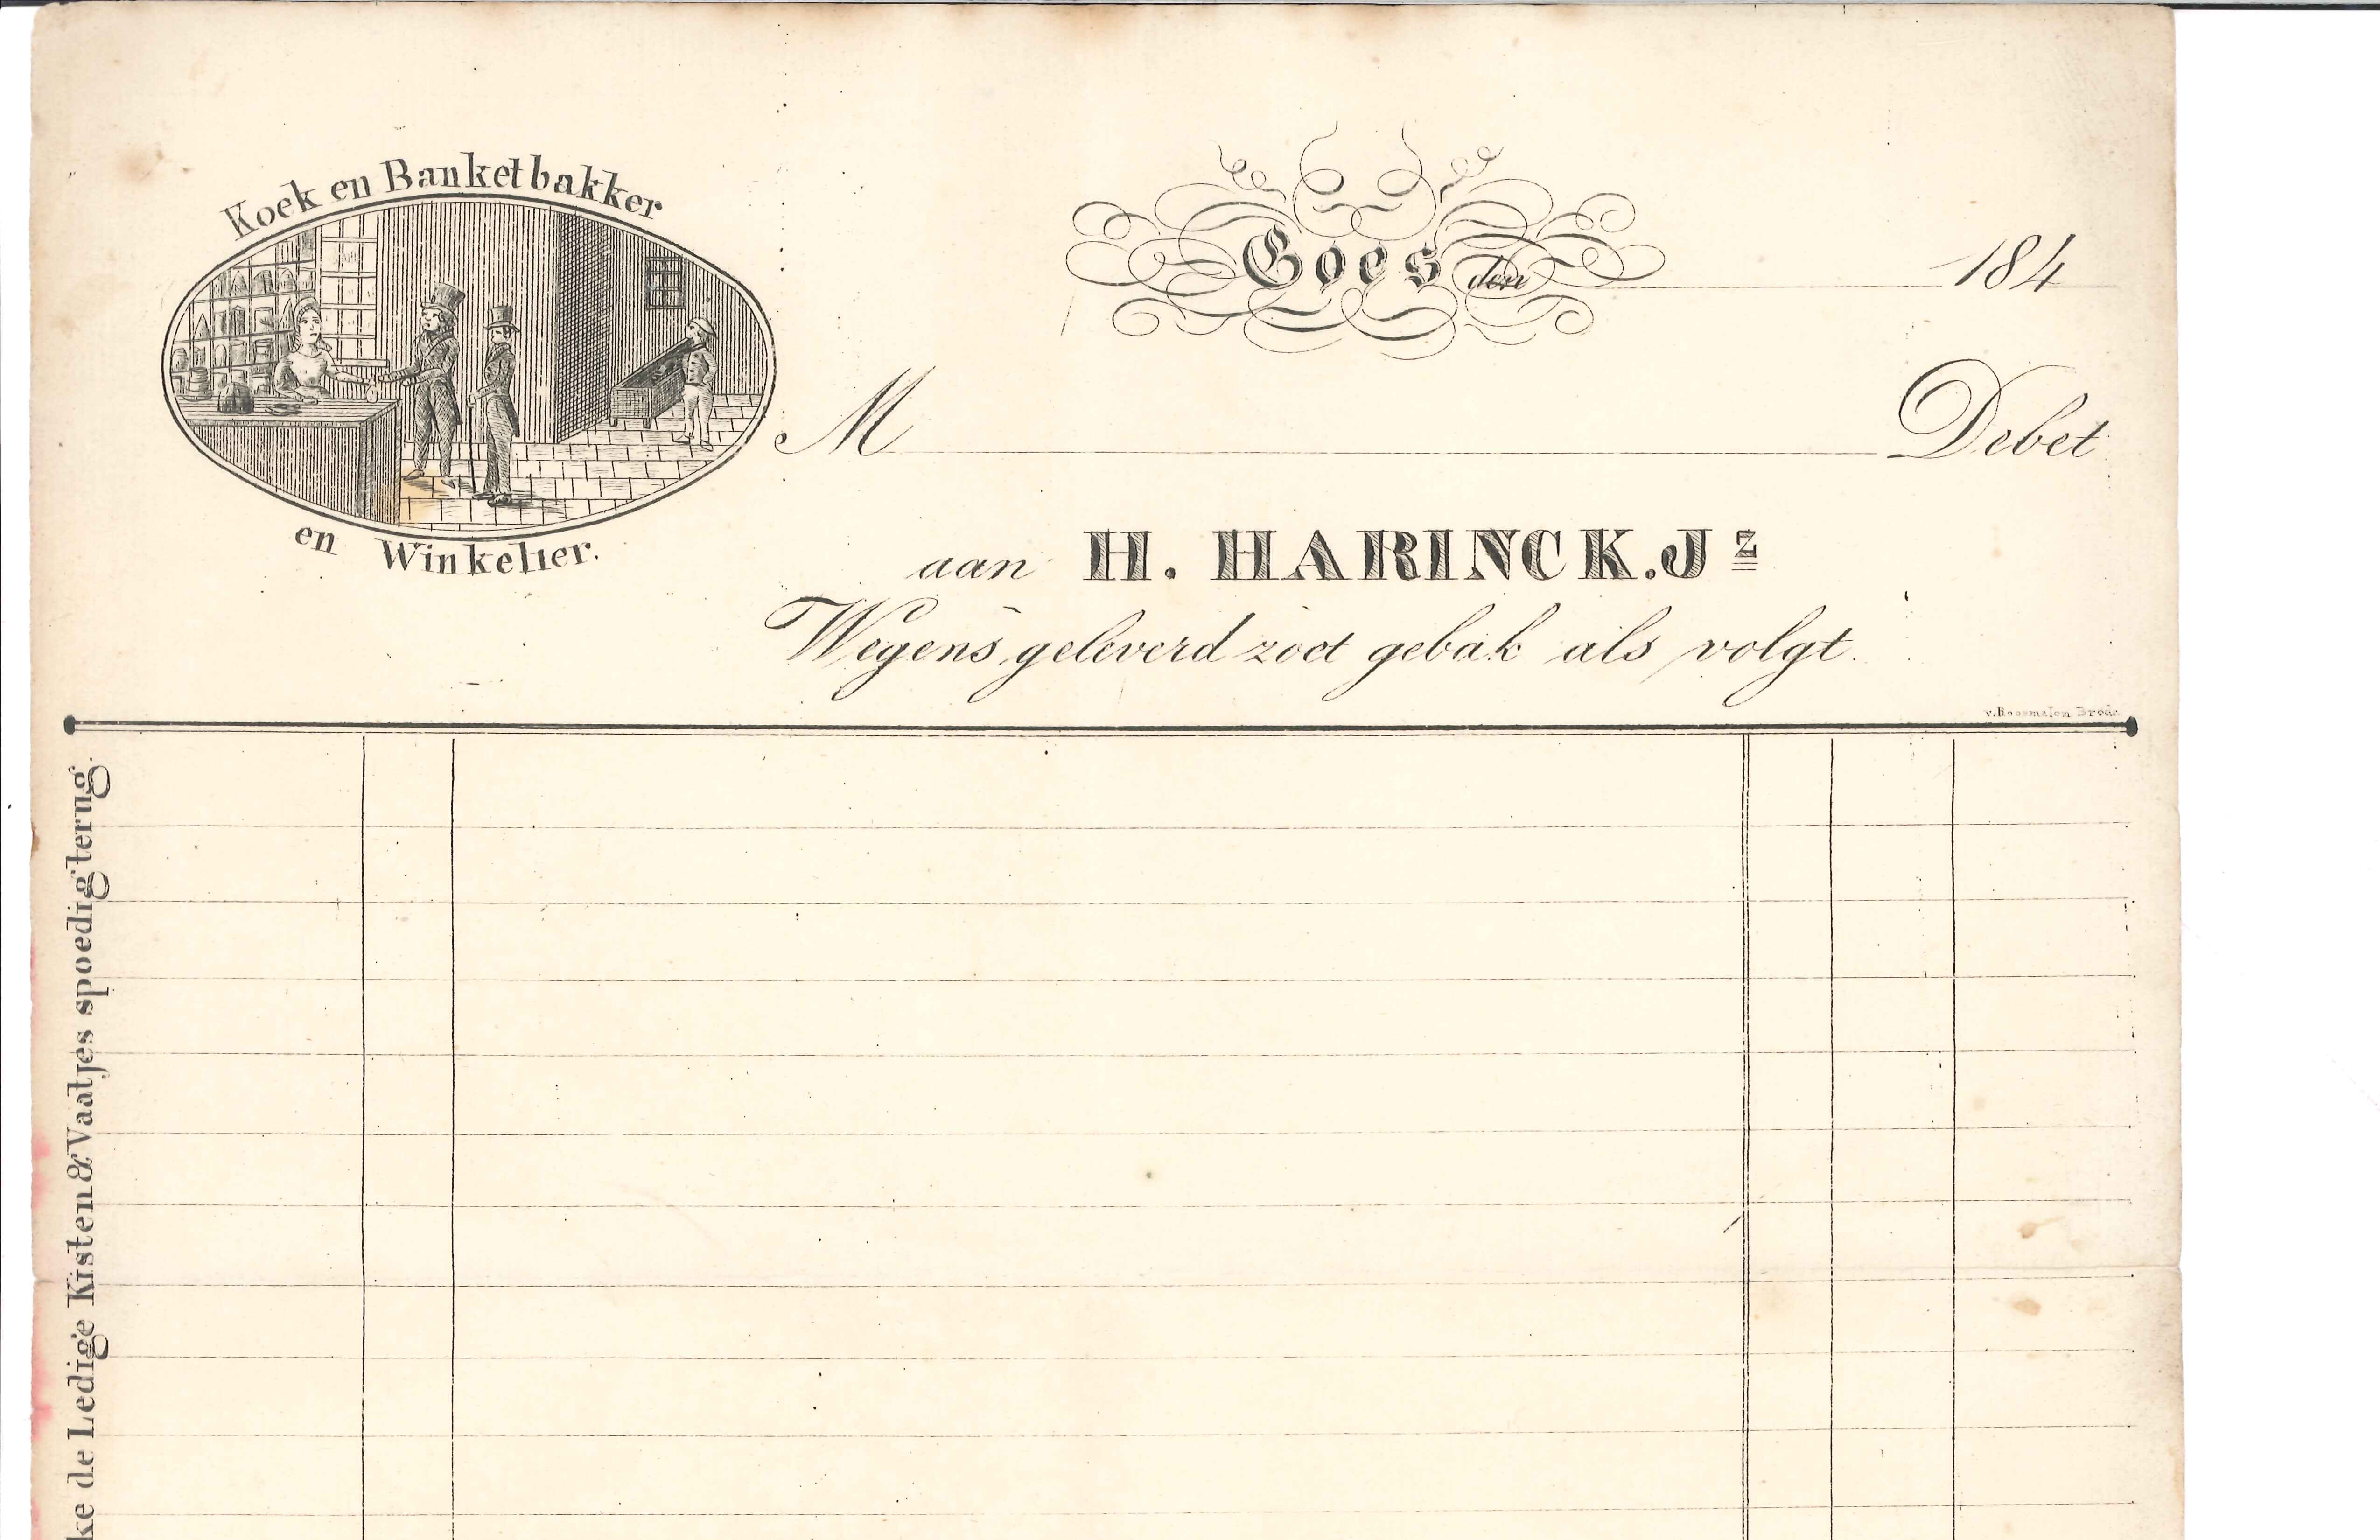 Koek en Banketbakker
en Winkelier.
Goes den 184
M Debet
aan H. HARINCK. Jz
Wegens geleverd zoet gebak als volgt.
v. Roosmalen Breda
ke de Ledige Kisten & Vaatjes spoedig terug.